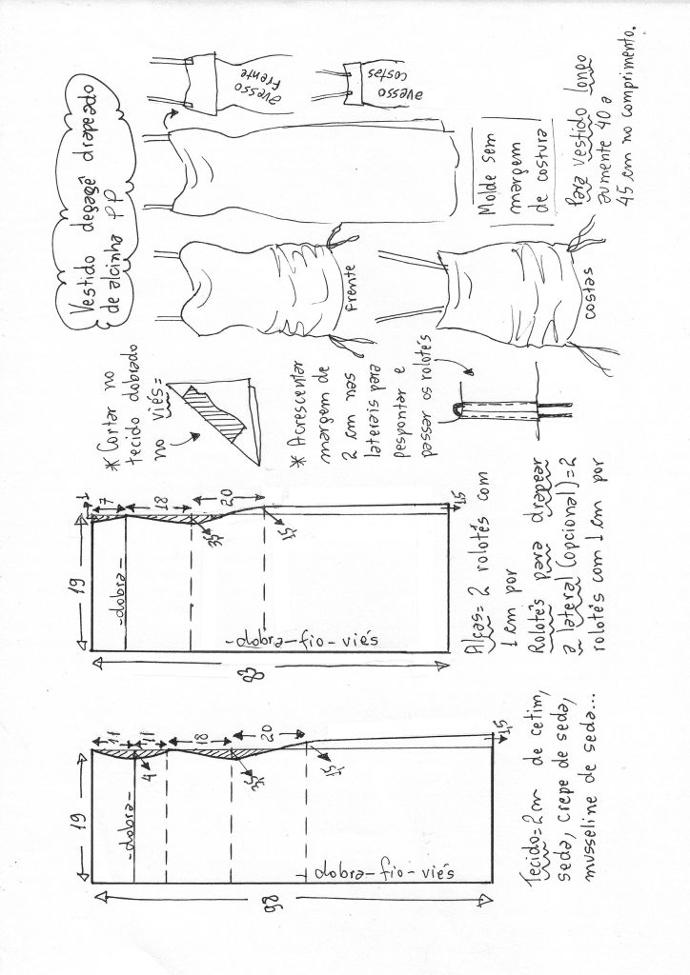 Vestido degagê drapeado
de alcinha PP
avesso
frente
avesso
costas
Molde sem
margem
de costura
Para vestido longo
aumente 40 a
45 cm no comprimento.
Frente
costas
* Cortar no
tecido dobrado
no viés=
* Acrescentar
margem de
2 cm nas
laterais para
pespontar e
passar os rolotês
19
1
7
18
20
3,5
1,5
1,5
-dobra-
-dobra-fio-viés
83
Alças= 2 rolotés com
1 em por
Rolotés para drapear
a lateral (opcional)=2
rolotés com 1 em por
19
11
11
18
20
4
3,5
1,5
1,5
-dobra-
-dobra-fio-viés
98
Tecido=2m de cetim,
seda, crepe de seda,
musseline de seda...